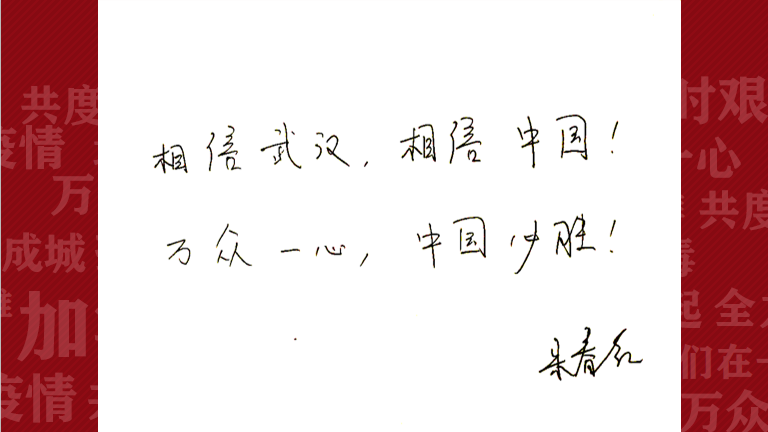 相信武汉，相信中国！
万众一心，中国必胜！
朱春红
共度
疫情
万
成城
加
疫情
时艰
一心
共度
毒
起 全力
们在一
万众